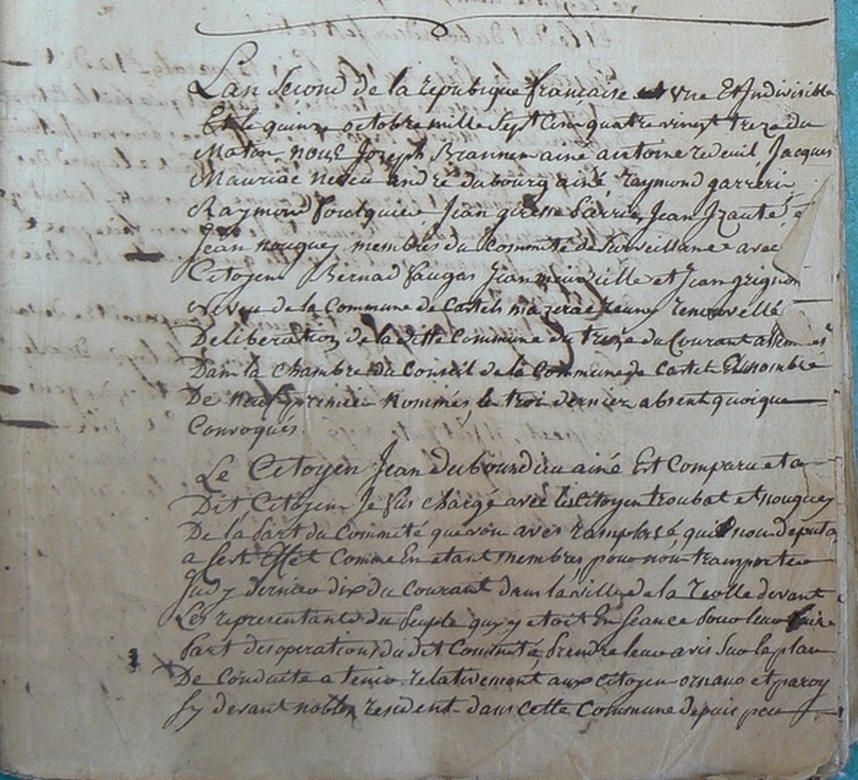 Lan second de la republique française une Et Indivisible
Et le quinze octobre mille sept cen quatre vingt treze du
Matin nous Joseph Brannen ainé antoine redeuil Jacques
Mauriac neveu andré dubourg ainé, Raymond garrerie
Raymond foulquier Jean Jean Izauté
Jean nouguey membres du Committé de Surveillance avec
Citoyens Bernad faugas Jean et Jean grignon
neveu de la Commune de Castels renouvellé
Deliberation de la ditte Commune du treize du Courant
Dans la chambre du Conseil de la Commune de Castet
De neuf premier Nommés, le troi dernier absent quoique
Convoqués
Le Citoyen Jean dubourdieu ainé Est Comparu et a
Dit Citoyen Je fus chargé avec les Citoyen troubat et nouguey
De la part du Committé que vou aves ramplasé, qui nou deputa
a Cest Effet Comme En etant membres pour nou transporter
Judy dernier dix du Courant dans la ville de la Reolle devant
Les representants du Peuple quy y etoit En Seance pour leur faire
Part des operations du dit Committé, Prendre leur avis Sur le plan
De Conduite a tenir relativement aux citoyen ornano et paroy
Sy devant nobles resident dans cette Commune depuis peu